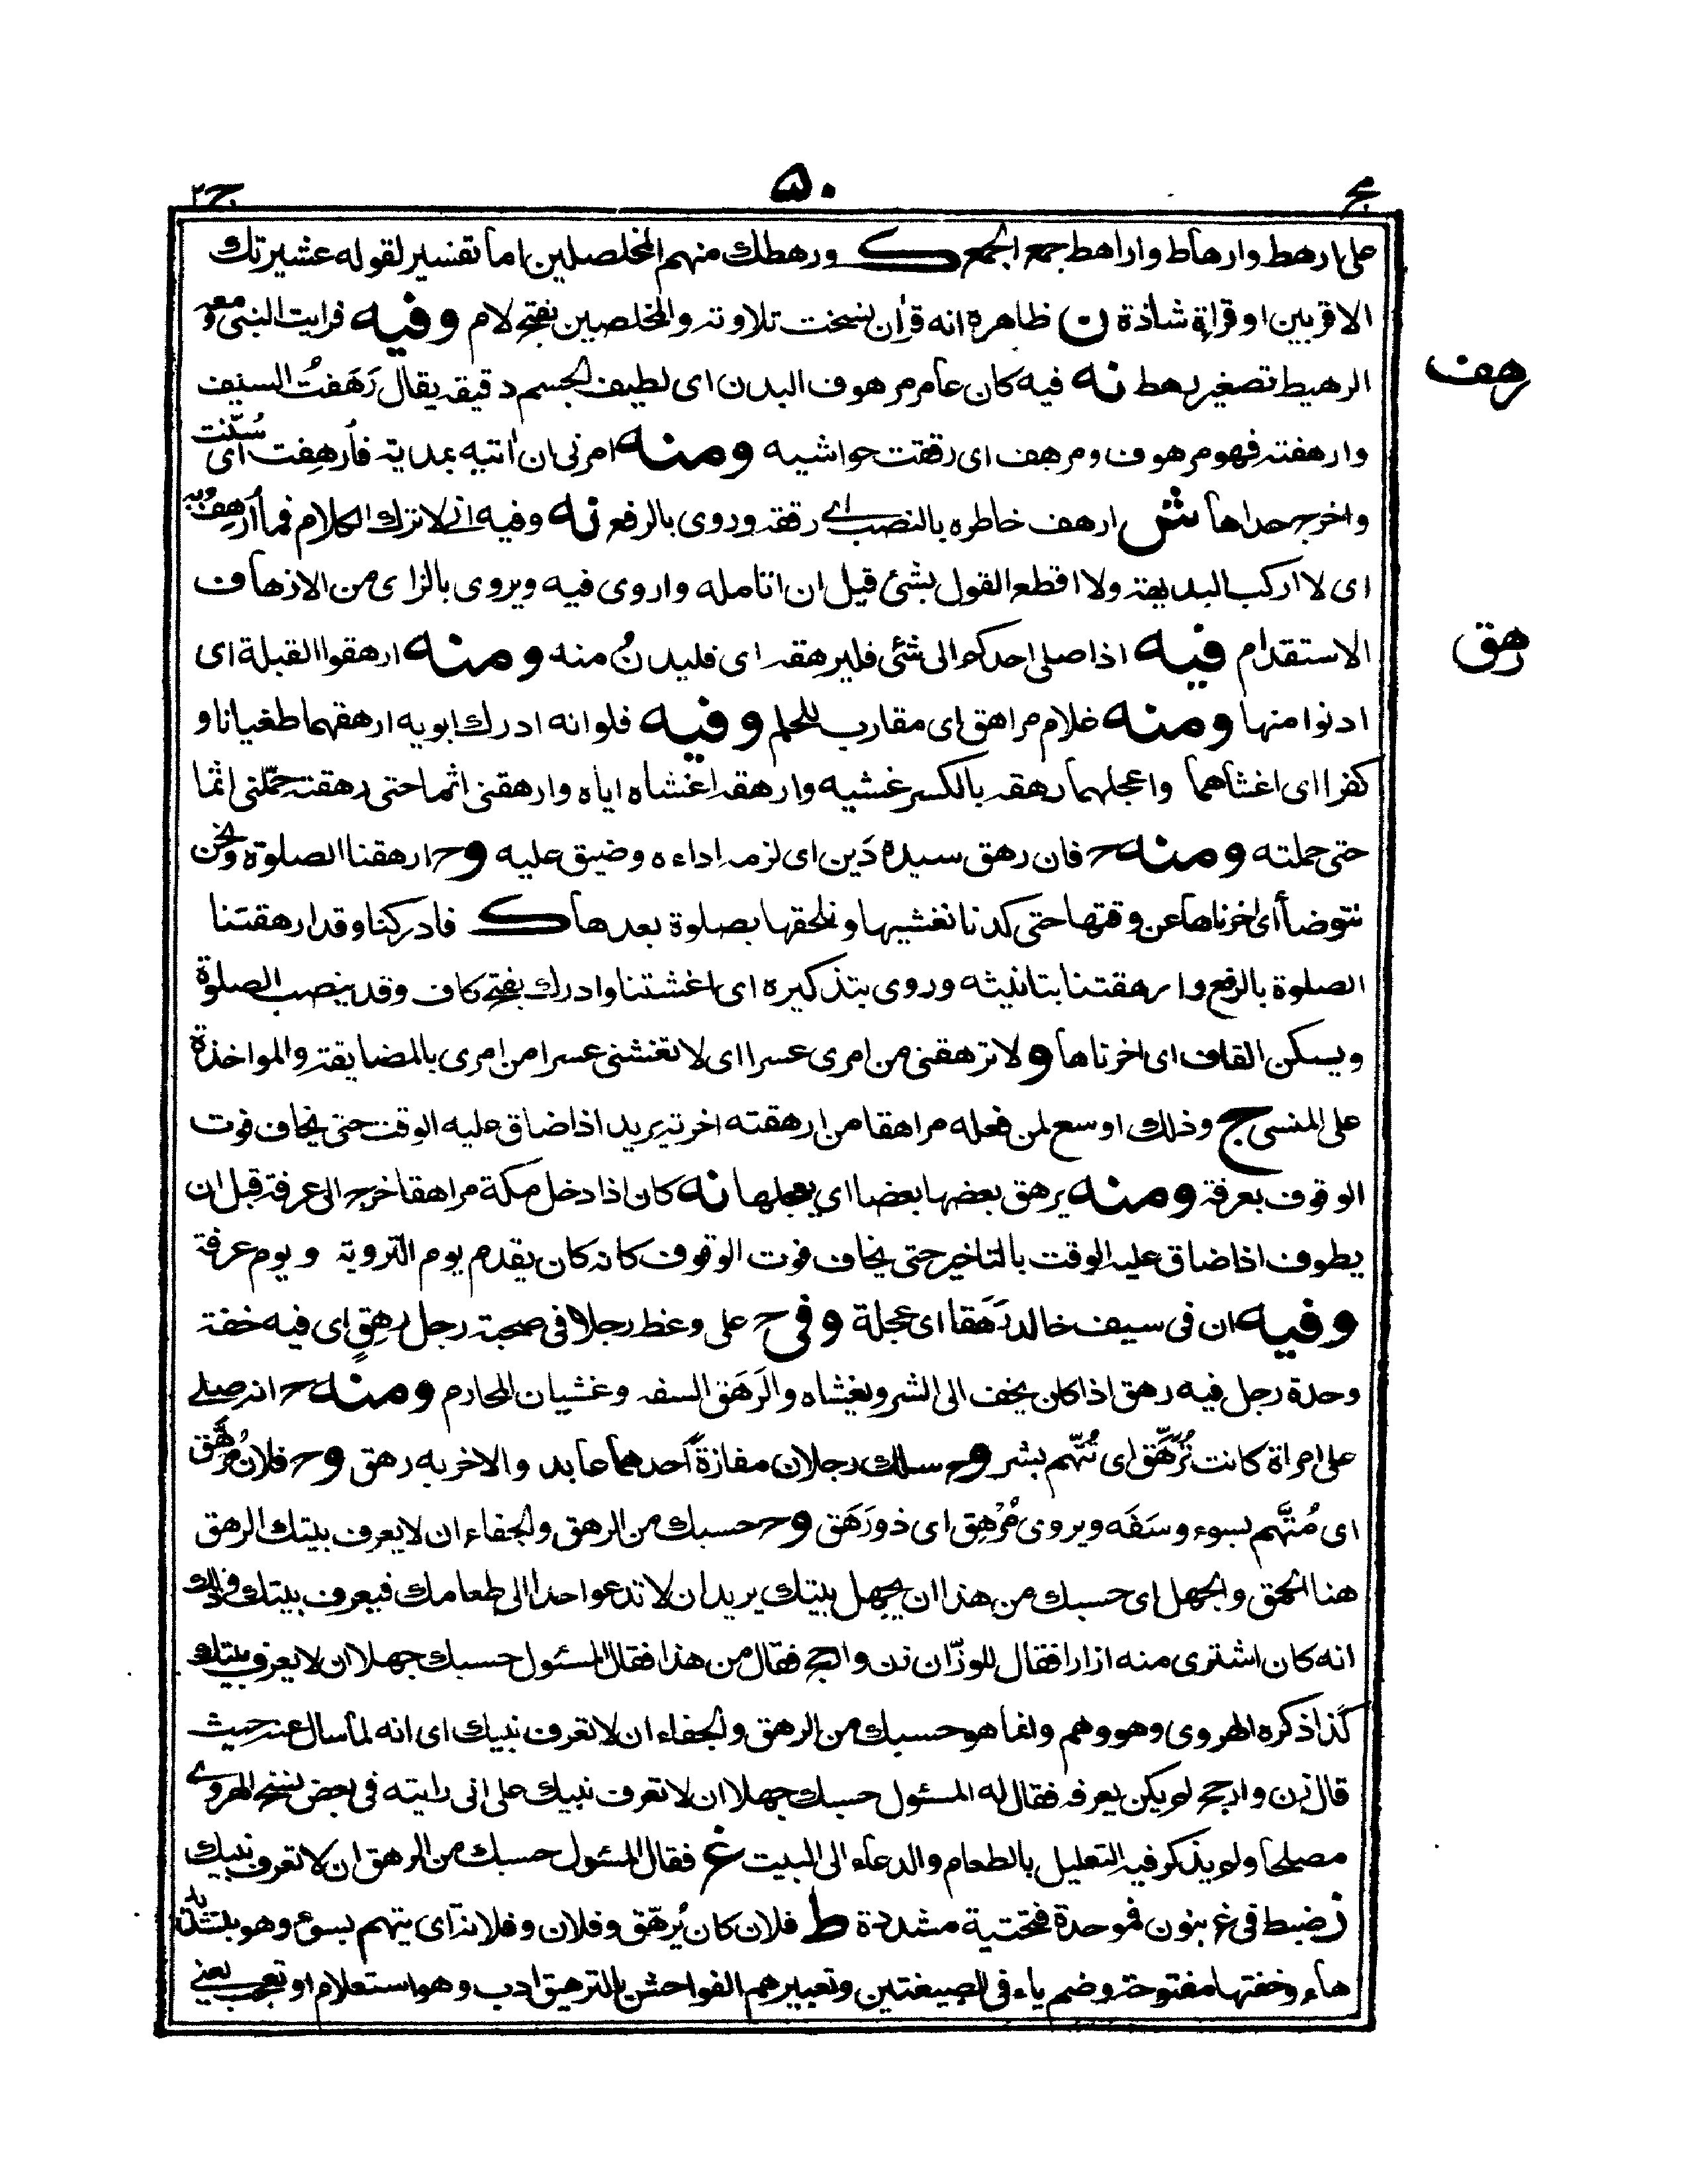 مج ۵۰ ج۲
على ارهط وارهاط واراهط جمع الجمع ك ورهطك منهم المخلصلين اما تفسير لقوله عشيرتك
الاقربين او قراة شاذة ن ظاهره انه قرأن نسخت تلاوته والمخلصين بفتح لام وفيه فرايت النبى ومعه
الرهيط تصغير رهط نه فيه كان عامر مرهوف البدن اى لطيف الجسم دقيقه يقال رَهَفتُ السيف
رهف
وارهفته فهو مرهوف ومرهف اى رققت حواشيه ومنه امرنى ان اتيه بمدية فأرهِفت اى سُنّت
واخرج حداها ش ارهف خاطره بالنصب اے رققه وروى بالرفع نه وفيه انى لاترك الكلام فما أرهِفُ به
اى لا اركب البديهة ولا اقطع القول بشئ قبل ان اتامله واروى فيه ويروى بالزاى من الازهاف
الاستقدام فيه اذا صلى احدكم الى شئى فليرهقه اى فليدنُ منه ومنه ارهقوا القبلة اى
رهق
ادنوا منها ومنه غلام مراهق اى مقارب للحلم وفيه فلو انه ادرك ابويه ارهقهما طغيانا و
كفرا اى اغشاهما واعجلهما رهقه بالكسر غشيه وارهقه اغشاه اياه وارهقنى اثما حتى رهقته حمّلنى اثما
حتى حملته ومنه ح فان رهق سيده دَين اى لزمه اداءه وضيق عليه وح ارهقنا الصلوة ونحن
نتوضأ اى اخرناها عن وقتها حتى كدنا نغشيها ونلحقها بصلوة بعدها ك فادركنا وقد ارهقتنا
الصلوة بالرفع وارهقتنا بتانيثه وروى بتذكيره اى اغشتنا وادرك بفتح كاف وقد ينصب الصلوة
ويسكن القاف اى اخرناها و لا ترهقنى من امرى عسرا اى لا تغشنى عسرا من امرى بالمضايقة والمواخذة
على المنسى ج وذلك اوسع لمن فعله مراهقا من ارهقته اخرته يريد اذا ضاق عليه الوقت حتى يخاف فوت
الوقوف بعرفة ومنه يرهق بعضها بعضا اى يعجلها نه كان اذا دخل مكة مراهقا خرج الى عرفة قبل ان
يطوف اذا ضاق عليه الوقت بالتاخير حتى يخاف فوت الوقوف كانه كان يقدم يوم التروية و يوم عرفة
وفيه ان فى سيف خالد رَهَقا اى عجلة وفى ح على وعظ رجلا فى صحبة رجل رهِقٍ اى فيه خفة
وحدة رجل فيه رهق اذا كان يخف الى الشر ويغشاه والرَهَق السفه وغشيان المحارم ومنه ح انه صلے
على امراة كانت تُرَهَّق اى تُتّهم بشر وح سلك رجلان مفازةً احدهما عابد والاخر به رهق وح فلان مُرَهَّق
اى مُتَّهم بسوء وسَفَه ويروى مُرْهِق اى ذو رَهَق وح حسبك من الرهق والجفاء ان لا يعرف بيتك الرهق
هنا الحمق والجهل اى حسبك من هذا ان يجهل بيتك يريد ان لا تدعو احدا الى طعامك فيعرف بيتك وذلك
انه كان اشترى منه ازارا فقال للوزّان زن وارجح فقال من هذا فقال المسئول حسبك جهلا ان لا تعرف بيتك
كذا ذكره الهروى وهو وهم وانما هو حسبك من الرهق والجفاء ان لا تعرف نبيك اى انه لما سال عنه حيث
قال زن وارجح لم يكن يعرفه فقال له المسئول حسبك جهلا ان لا تعرف نبيك على انى رايته فى بعض نسخ الهروے
مصلحا ولم يذكر فيه التعليل بالطعام والدعاء الى البيت غ فقال المسئول حسبك من الرهق ان لا تعرف نبيك
ز ضبط فى غ بنون فموحدة فتحتية مشددة ط فلان كان يُرهّق وفلان وفلانة اى يتهم بسوء وهو بتشديد
هاء وخفتها مفتوحة وضم ياء فى الصيغتين وتعبيرهم الفواحش بالترهيق ادب وهو استعلام او تعجب يعنے